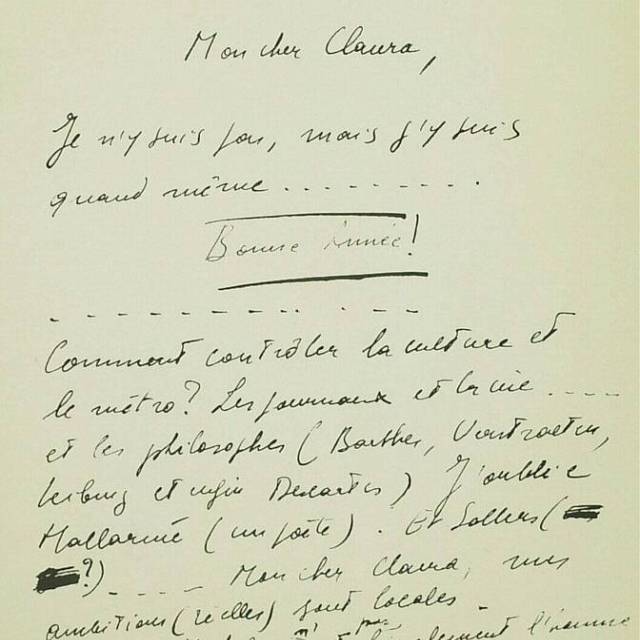 Mon cher Claura,
Je n'y suis pas, mais j'y suis
quand même.........
Bonne Année!
Comment contrôler la culture et
le métro? Les journaux et la vie....
et les philosophes (Barthes,
et enfin Descartes) J'oublie
Mallarmé (un poète). Et Sollers (
?).... Mon cher Claura, mes
ambitions (réelles) sont locales
l'homme